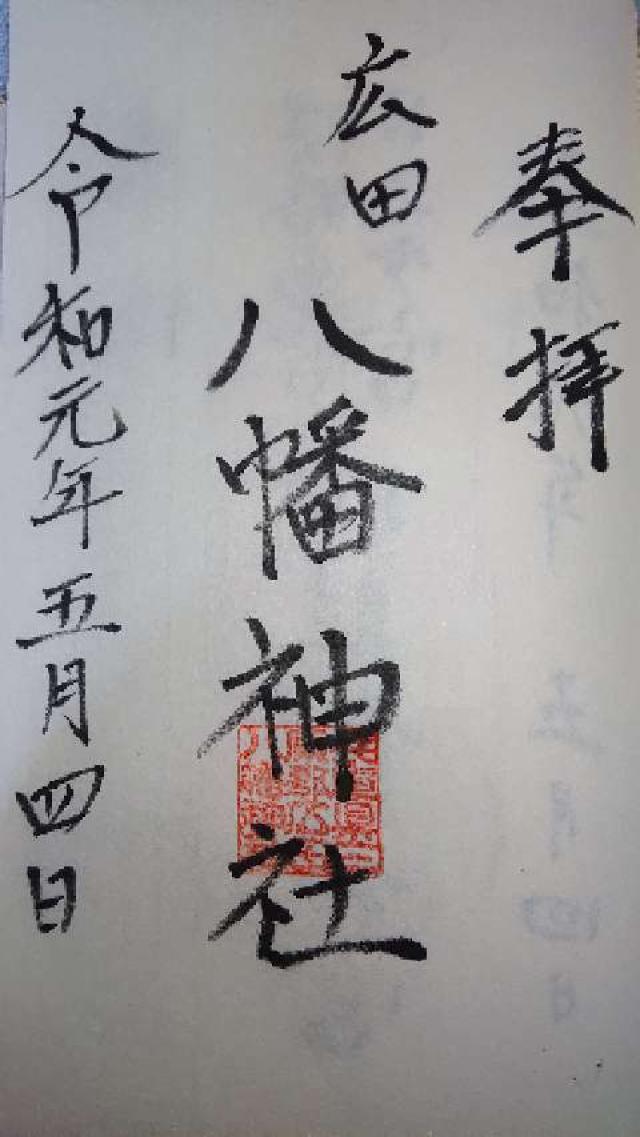 奉拝
広田
八幡神社
令和元年五月四日